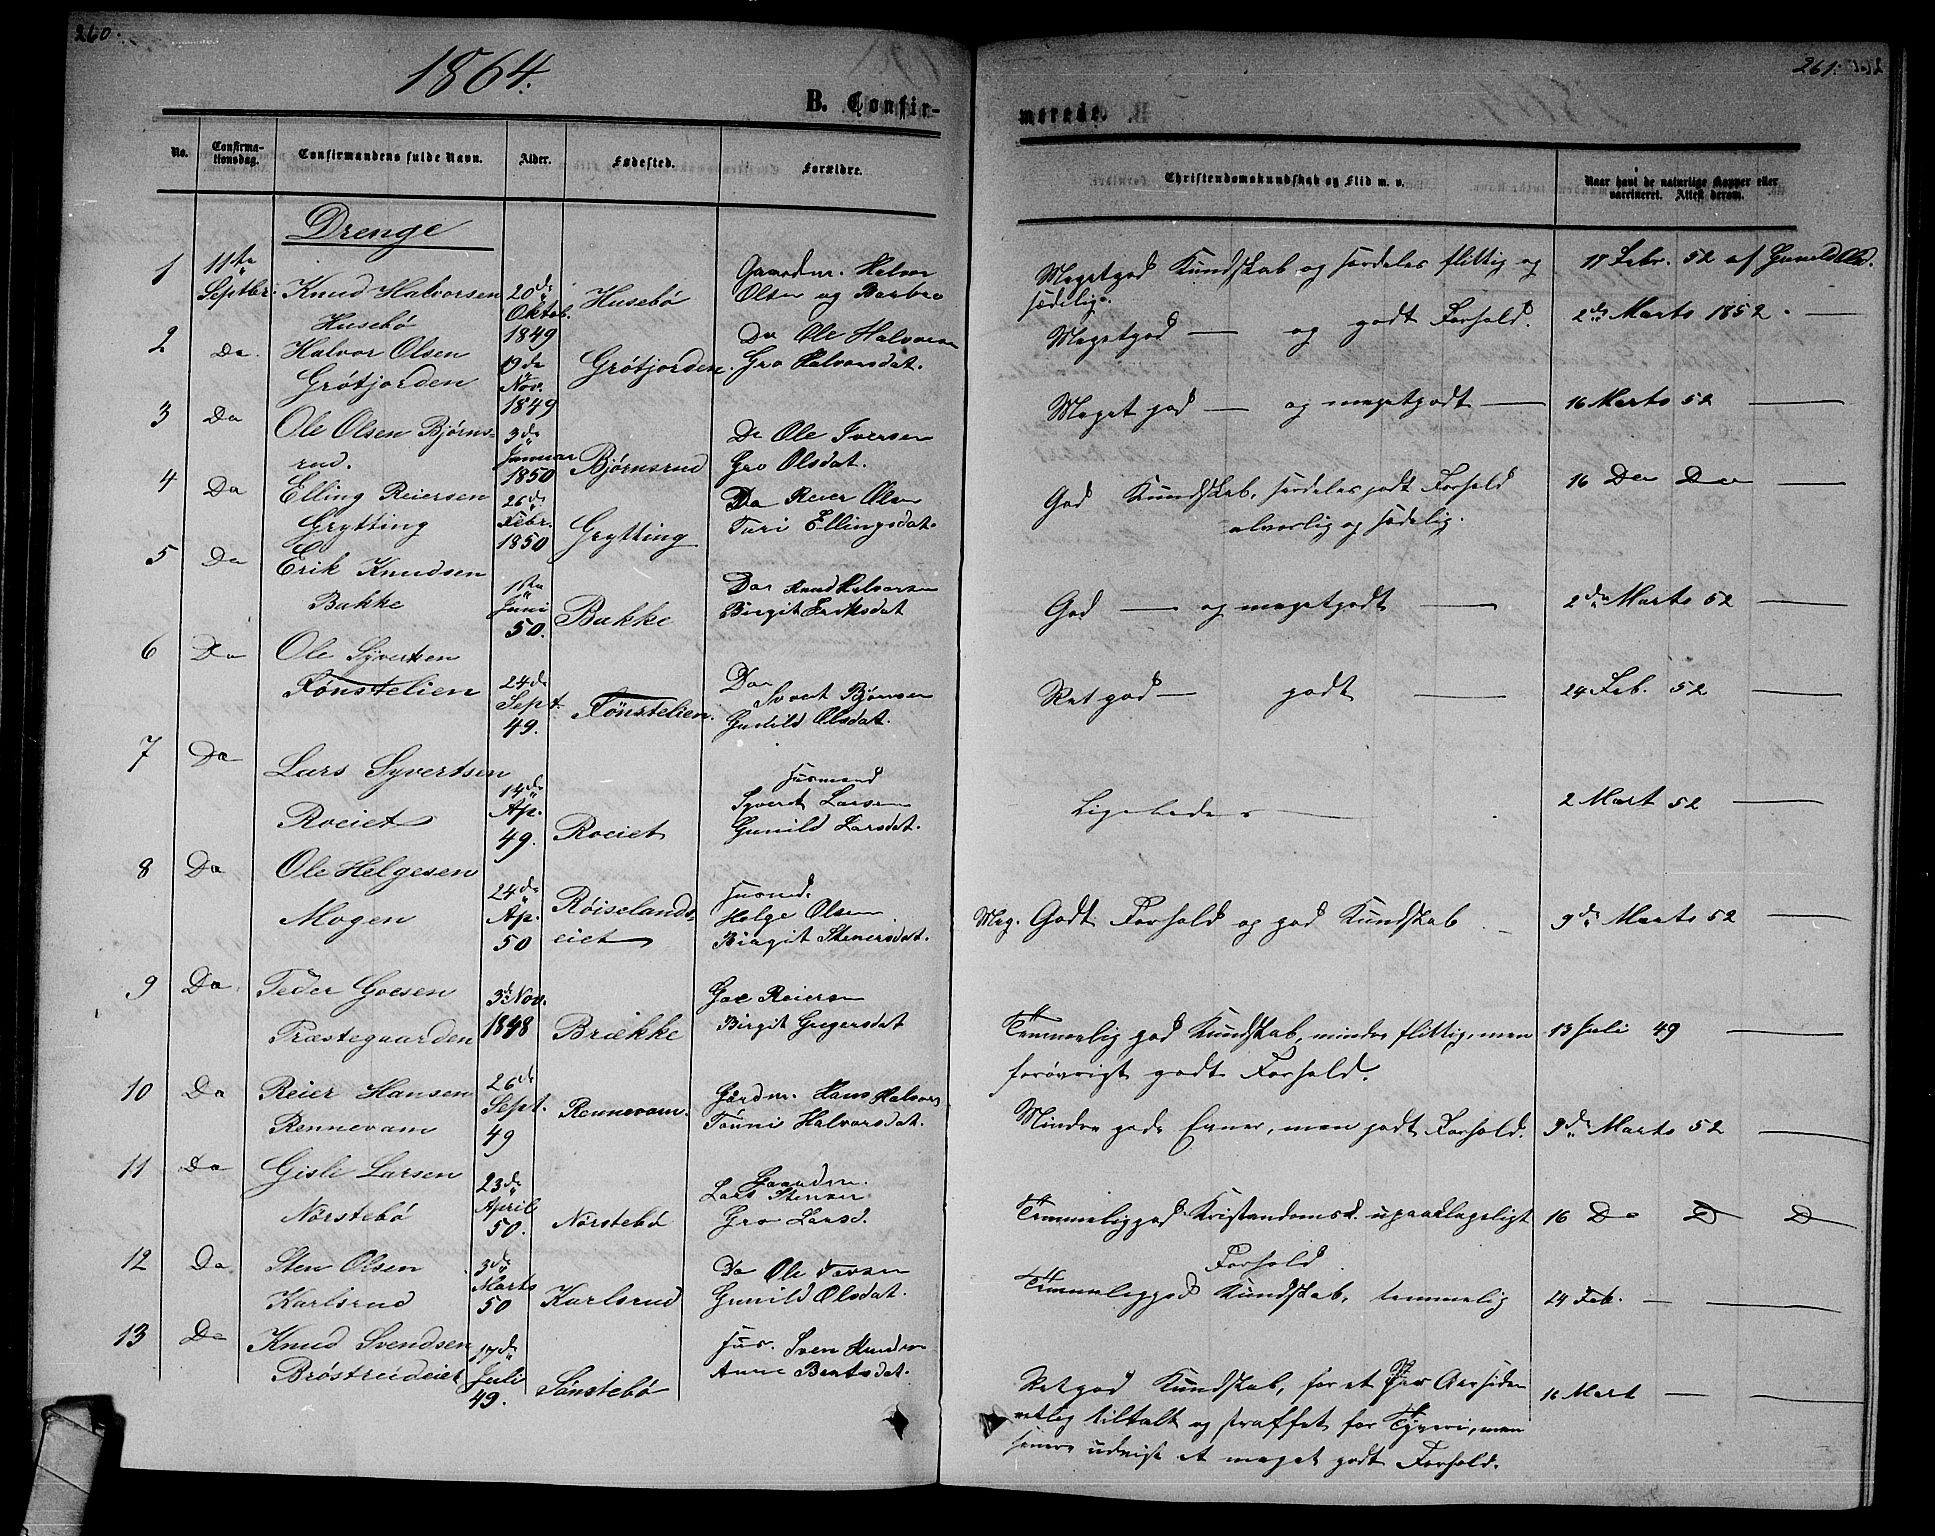 260.
1864.
B. Confir-
No.
Confirma-
tionsdag.
Confirmandens fulde Navn.
Alder.
Fødested.
Forældre.
Drenge
1 11te Septbr. Knud Halvorsen Husebö 20de Oktob. 1849 Husebö Gaardm. Halvor Olsen og Barbro
2 Do. Halvor Olsen Grötjorden 19de Nov. 1849 Grötjorden. Do Ole Halvorsen Gro Halvorsdat.
3 Do Ole Olsen Bjørns-rud. 3de Januar 1850 Bjørnsrud Do Ole Iversen Gro Olsdat.
4 Do Elling Reiersen Grytting 26de Febr. 1850 Grytting Do Reier Olsen Turi Ellingsdat.
5 Do Erik Knudsen Bakke 1ste Juni 50. Bakke Do Knud Halvorsen Birgit Eriksdat
6 Do Ole Syvertsen Tönstelien 24de Sept. 49. Tönstelien. Do Sivert Bjørnsen Gunild Olsdat.
7 Do Lars Syvertsen Roeiet 14de Ap. 49. Roeiet Husmand Syvert Larsen Gunild Larsdat.
8 Do Ole Helgesen Mogen 24de Ap. 50 Röiselands-eiet Husmd. Helge Olsen Birgit Stenersdat.
9 Do. Peder Goesen Træstegaarden 3de Nov. 1848 Brække Goe Reiersen Birgit Gregersdat
10 Do Reier Hansen Rennevam 26de Sept. 49 Rennevam. Gaardm. Hans Halvors Tonni Halvorsdat.
11 Do Gisle Larsen Nörstebö 23de April 50. Nörstebö Gaardm. Lars Stensen Gro Larsd.
12 Do Sten Olsen Karlsrud 3de Marts 50 Karlsrud Do Ole Gunild Olsdat.
13 Do Knud Svendsen Bröstrudeiet 17de Juli 49. Sönstebö Hus. Sven Knudsen Anne Bentsdat.
261.
merede.
Christendomskundskab og Flid m. v.
Naar havt de naturlige Kopper eller
vaccineret. Attest derom.
Megetgod Kundskab og særdeles flittig og sædelig. 18 Febr. 52 af Gunild Olsd.
Megetgod — og godt Forhold. 2de Marts 1852. —
Meget god — og megetgodt — 16 Marts 52 —
God Kundskab, særdeles godt Forhold alvorlig og sædelig. 16 Do Do —
God — og megetgodt — 2de Marts 52 —
Retgod — godt — 24 Feb. 52 —
Ligeledes — 2 Mart 52 —
Meg. Godt Forhold og god Kundskab 9de Marts 52 —
Temmelig god Kundskab, mindre flittig, men forøvrigt godt Forhold. 13 Juli 49 —
Mindre gode Evner, men godt Forhold. 9de Marts 52 —
Temmeliggod Kristendomsk. upaaklageligt Forhold 16 Do D D
Temmeliggod Kundskab, temmelig 24 Feb. — —
Retgod Kundskab, for et Par Aar siden
retlig tiltalt og straffet for Tyveri, men
senere udvist et meget godt Forhold. 16 Mart — —